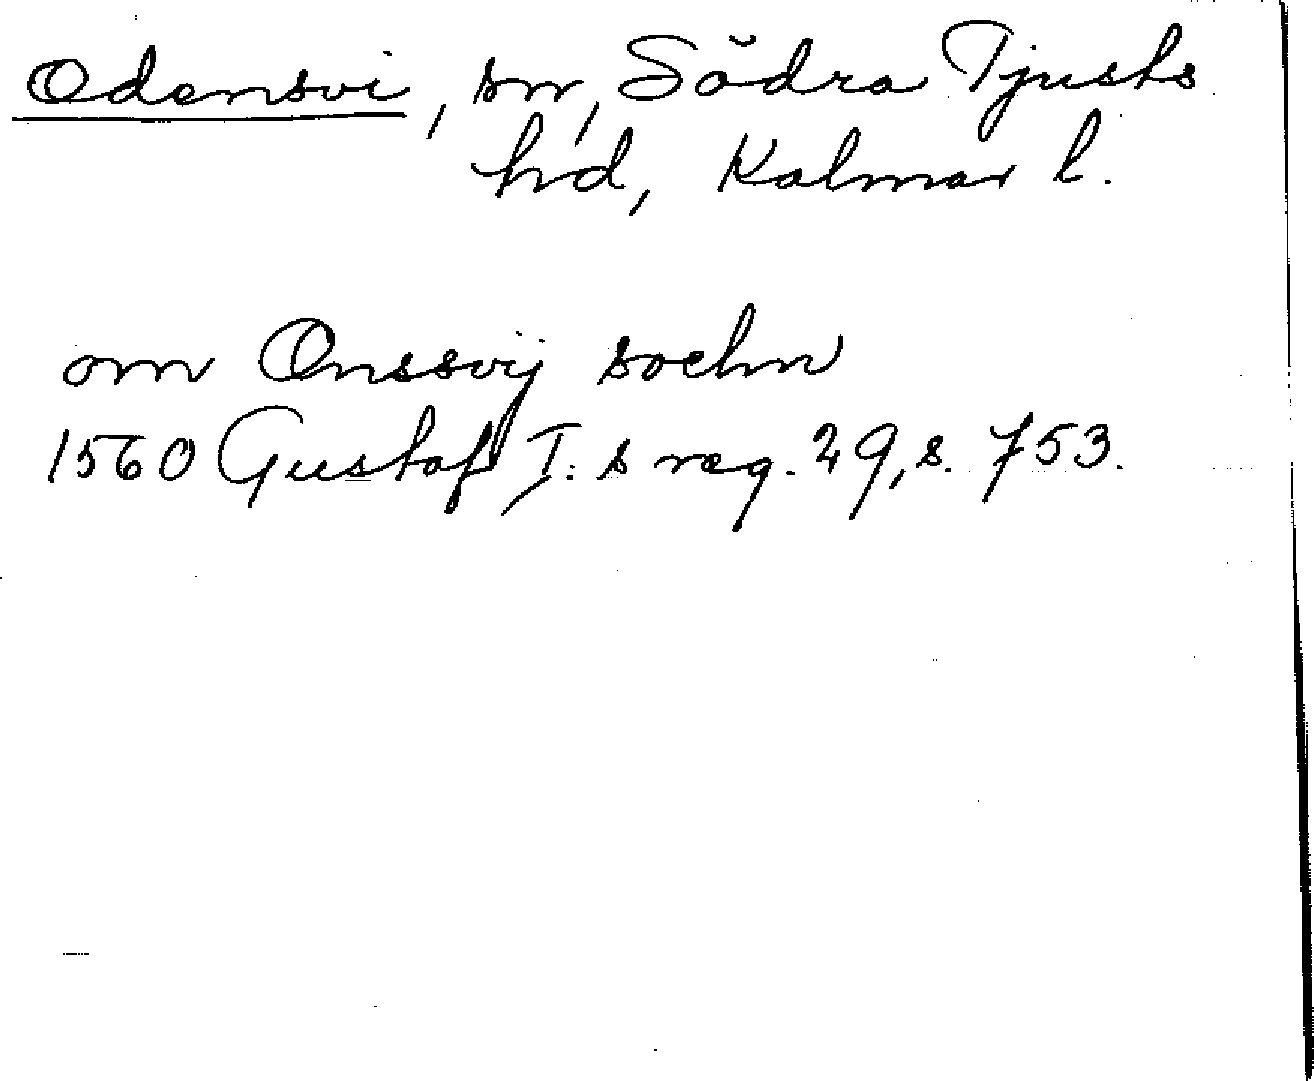 Odensvi, sn, Södra Tjusts
hd, Kalmar l.
om Onssvij sochn
1560 Gustaf I:s reg. 29, s. 753.